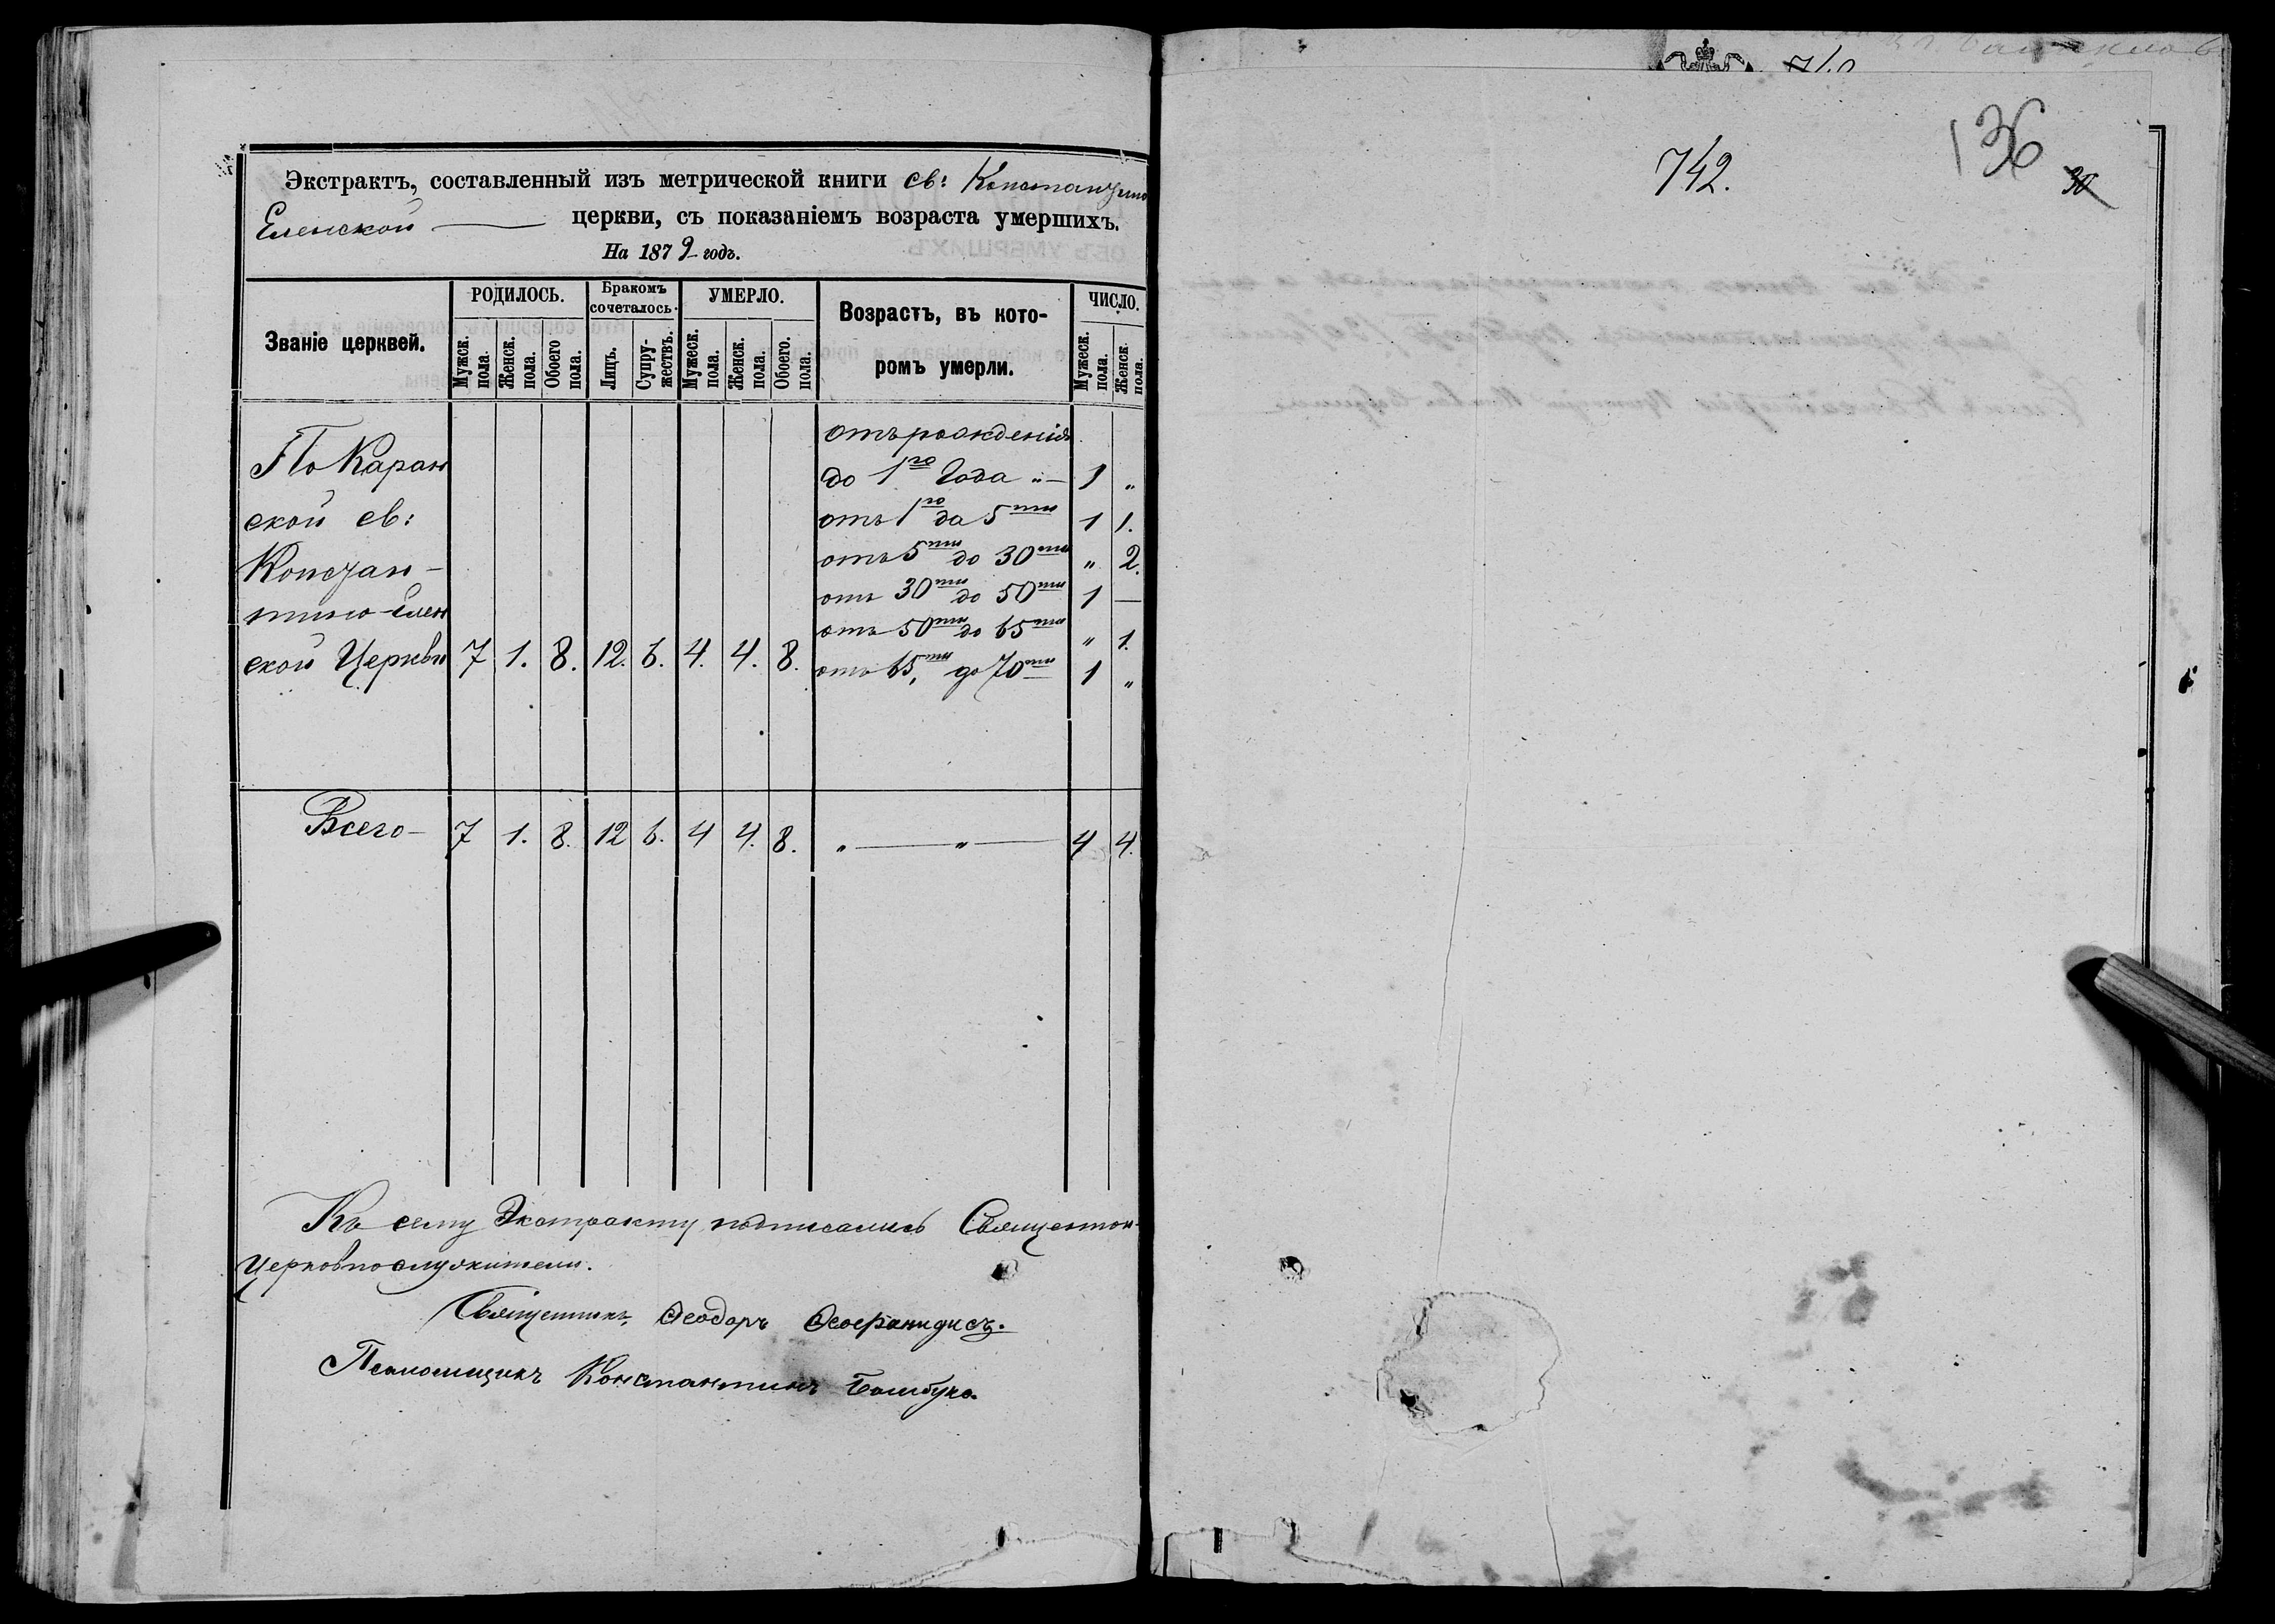 Экстрактъ, составленный изъ метрической книги св: Константино
Еленской церкви, съ показаніемъ возраста умершихъ.
На 1879 годъ.
Званіе церквей.
РОДИЛОСЬ.
Мужск. пола.
Женск. пола.
Обоего пола.
Бракомъ сочеталось.
Лицъ.
Супружествъ.
УМЕРЛО.
Мужеск. пола.
Женск. пола.
Обоего. пола.
Возрастъ, въ кото-
ромъ умерли.
ЧИСЛО.
Мужеск. пола.
Женск. пола.
отъ рожденія
По Каран до 1го Года „— 1 „
ской св: отъ 1го да 5ти 1 1.
Констан- отъ 5ти до 30ти „ 2.
тино-Елен отъ 30ти до 50ти 1 —
отъ 50ти до 65ти „ 1.
ской Церкви 7 1. 8. 12. 6. 4. 4. 8. отъ 65ти до 70ти 1 „
Всего— 7 1. 8. 12 6. 4 4. 8. „—„— 4 4.
Къ сему Экстракту подписались Священнои-
Церковнослужители.
Священникъ Ѳеодоръ Ѳеофанидисъ.
Псаломщикъ Константинъ
742.
136
30